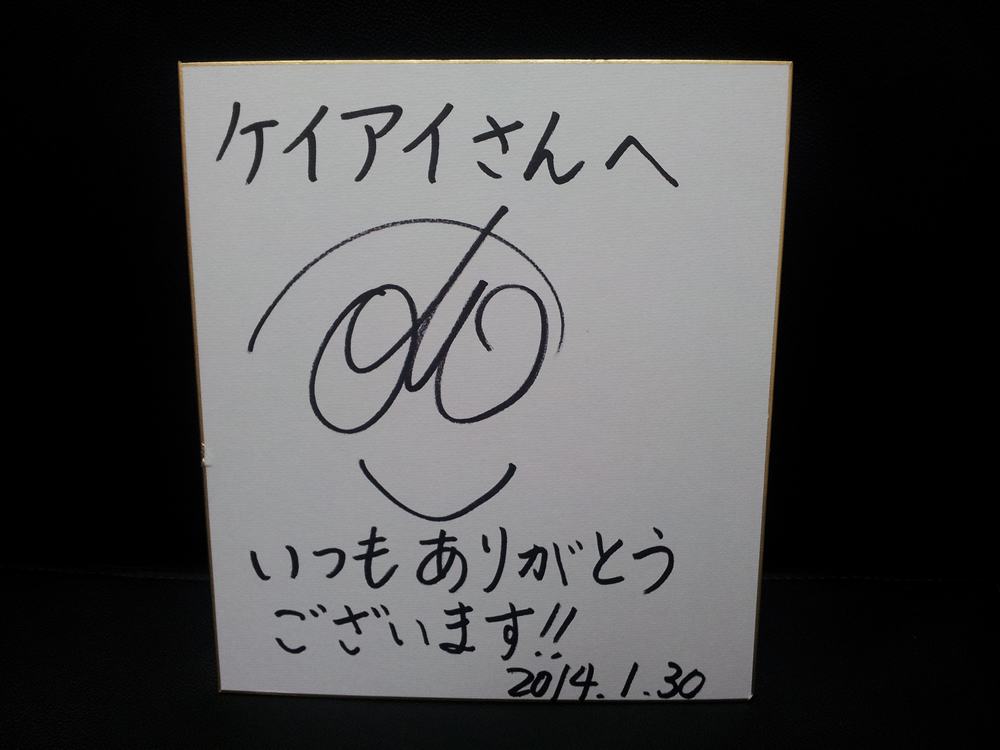 ケイアイさんへ
いつもありがとう
ございます!!
2014.1.30